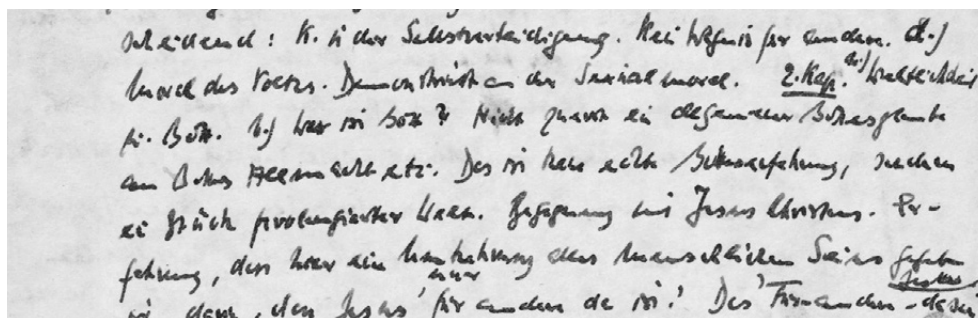 scheidend: K. in der Selbstverteidigung. Kein Wagnis für andere. d.)
Moral des Volkes. Demonstriert an der Sexualmoral. 2. Kap. a.) Weltlichkeit
u. Gott. b.) Wer ist Gott? Nicht zuerst ein allgemeiner Gottesglaube
an Gottes Allmacht etc. Das ist keine echte Gotteserfahrung, sondern
ein Stück prolongierter Welt. Begegnung mit Jesus Christus. Er-
fahrung, dass hier eine Umkehrung alles menschlichen Seins gegeben
ist, darin, dass Jesus nur "für andere da ist". Das "Für-andere-dasein" Jesu